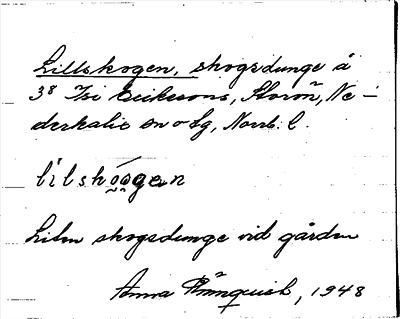 Lillskogen, skogsdunge å
3⁸ Isi Erikssons, Storön, Ne-
derkalix sn o lg, Norrb. l.
lilskogen
Liten skogsdunge vid gården
Anna Rönnquist, 1948